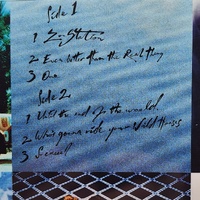 Side 1
1 Zoo Station
2 Even better than the Real thing
3 One
Side 2.
1 Until the end of the world.
2 Who's gonna ride your Wild Horses
3 Scienel